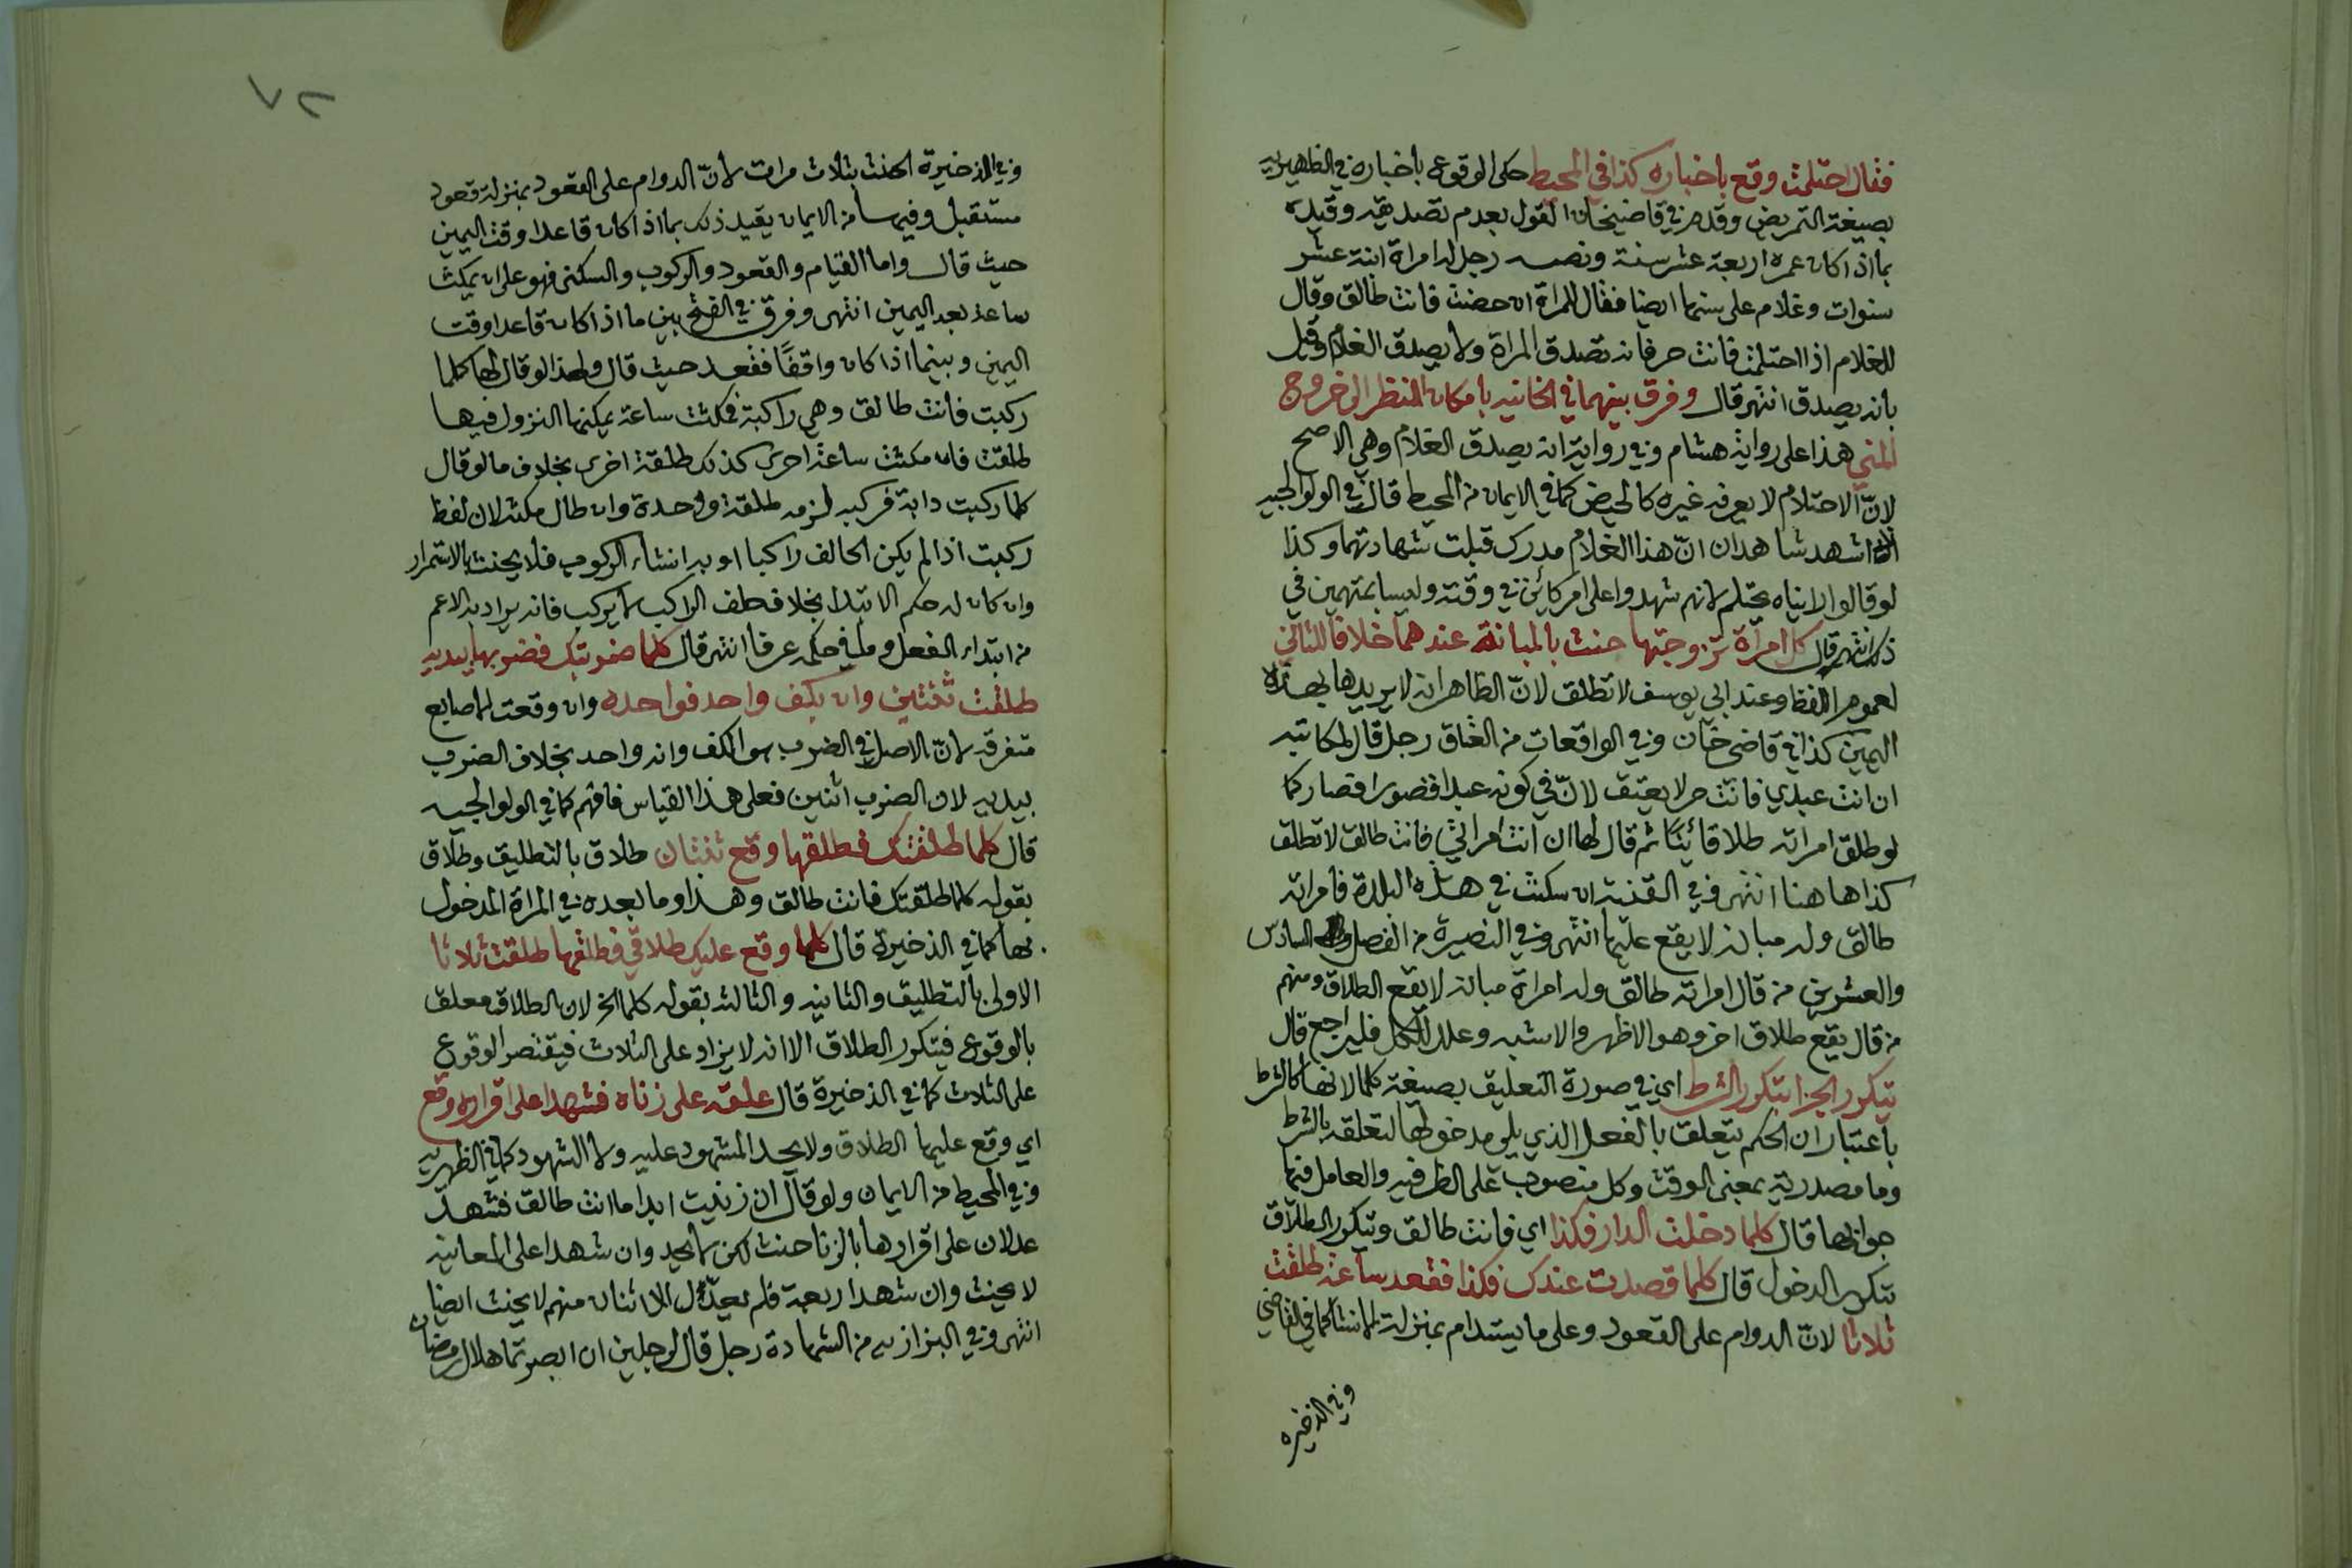 فقال احتلمت وقع باخباره كذا في المحيط حكى الوقوع باخباره في الظهيرية
بصيغة التمريض وقدم في قاضيخان القول بعدم تصديقه وقيده
بما اذا كان عمره اربعة عشر سنة ونصه رجل له امراة ابنة عشر
سنوات وغلام على سنها ايضا فقال للمراة ان حضت فانت طالق وقال
للغلام اذا احتلمت فانت حر فانه تصدق المراة ولا يصدق الغلام وقيل
بانه يصدق انتهى قال وفرق بينهما في الخانية بامكان النظر الى خروج
المني هذا على رواية هشام وفي رواية انه يصدق الغلام وهي الاصح
لانّ الاحتلام لا يعرفه غيره كالحيض كما في الايمان من المحيط قال في الولوالجيه
اذا شهد شاهدان انّ هذا الغلام مدرك قبلت شهادتهما وكذا
لو قالوا راياه يحتلم لانهم شهدوا على امر كائن في وقته وليسا بمتهمين في
ذلك انتهى قال كل امرأة تزوجتها حنث بالمبانة عندهما خلافا للثاني
لعموم اللفظ وعند ابي يوسف لا تطلق لانّ الظاهر انه لا يريدها بهذه
اليمين كذا في قاضي خان وفي الواقعات من العتاق رجل قال لمكاتبه
ان انت عبدي فانت حر لا يعتق لانّ في كونه عبدا قصورا فصار كما
لو طلق امراته طلاقا بائنا ثم قال لها ان انت امراتي فانت طالق لا تطلق
كذا هاهنا انتهى وفي القنية ان سكنت في هذه البلدة فامراته
طالق وله مبانة لا يقع عليها انتهى وفي النصيرة من الفصل السادس
والعشرين من قال امراته طالق وله امراة مبانة لا يقع الطلاق ومنهم
من قال يقع طلاق اخر وهو الاظهر والاشبه وعلل للكل فليراجع قال
يتكرر الجزا بتكرر الشرط اي في صورة التعليق بصيغة كلما لانها كالشرط
باعتبار ان الحكم يتعلق بالفعل الذي يلي مدخولها لتعلقه بالشرط
وما مصدرية بمعنى الوقت وكل منصوب على الظرفيه والعامل فيها
جوابها قال كلما دخلت الدار فكذا اي فانت طالق وتكرر الطلاق
بتكرر الدخول قال كلما قعدت عندك فكذا فقعد ساعة طلقت
ثلاثا لانّ الدوام على القعود وعلى ما يستدام بمنزلة الانشا كما في القاضي
وفي الذخيره
٨٢
وفي الذخيرة الحنث بثلاث مرات لانّ الدوام على القعود بمنزلة قعود
مستقبل وفيها من الايمان يقيد ذلك بما اذا كان قاعدا وقت اليمين
حيث قال واما القيام والقعود والركوب والسكنى فهو على ان يمكث
ساعة بعد اليمين انتهى وفرق في الفتح بين ما اذا كان قاعدا وقت
اليمين وبينما اذا كان واقفًا فقعد حيث قال ولهذا لو قال لها كلما
ركبت فانت طالق وهي راكبة فمكثت ساعة يمكنها النزول فيها
طلقت فان مكثت ساعة اخرى كذلك طلقت اخرى بخلاف ما لو قال
كلما ركبت دابة فركبه لزمه طلقة واحدة وان طال مكثه لان لفظ
ركبت اذا لم يكن الحالف راكبا اوبه انشاء الركوب فلا يحنث بالاستمرار
وان كان له حكم الابتدا بخلاف حلف الراكب لا يركب فانه يراد به الاعم
من ابتداء الفعل وما في حكمه عرفا انتهى قال كلما ضربتك فضربها بيديه
طلقت ثنتين وان بكف واحد فواحده وان وقعت الاصابع
متفرقه لانّ الاصل في الضرب هو الكف وانه واحد بخلاف الضرب
بيديه لان الضرب اثنين فعلى هذا القياس فافهم كما في الولوالجيه
قال كلما طلقتك فطلقها وقع ثنتان طلاق بالتطليق وطلاق
بقوله كلما طلقتك فانت طالق وهذا وما بعده في المراة المدخول
بها كما في الذخيرة قال كلما وقع عليك طلاقي فطلقها طلقت ثلاثا
الاولى بالتطليق والثانيه والثالثه بقوله كلما الخ لان الطلاق معلق
بالوقوع فيتكرر الطلاق الا انه لا يزاد على الثلاث فيقتصر الوقوع
على الثلاث كما في الذخيرة قال علقه على زناه فشهدا على اقراره وقع
اي وقع عليها الطلاق ولا يحد المشهود عليه ولا الشهود كما في الظهيريه
وفي المحيط من الايمان ولو قال ان زنيت ابدا ما انت طالق فشهد
عدلان على اقرارها بالزنا حنث لكن لا يحد وان شهدا على المعاينه
لا يحنث وان شهد اربعة فلم يعدّل الا اثنان منهم لا يحنث ايضا
انتهى وفي البزازيه من الشهادة رجل قال لرجلين ان ابصرتما هلال رمضان